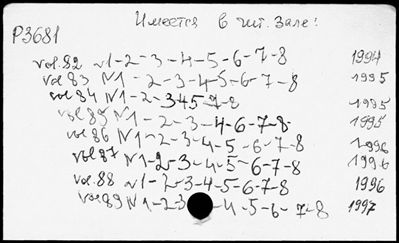 Имеется в чит. зале:
P3681
vol. 82 N1-2-3-4-5-6-7-8 1994
vol 83 N1-2-3-4-5-6-7-8 1995
vol 84 N1-2-3 4 5 7-8 1995
vol 85 N1-2-3-4-6-7-8- 1995
vol 86 N1-2-3-4-5-6-7-8 1996
vol 87 N1-2-3-4-5-6-7-8 1996
vol. 88 N1-2-3-4-5-6-7-8 1996
vol 89 N1-2-3-4-5-6-7-8 1997